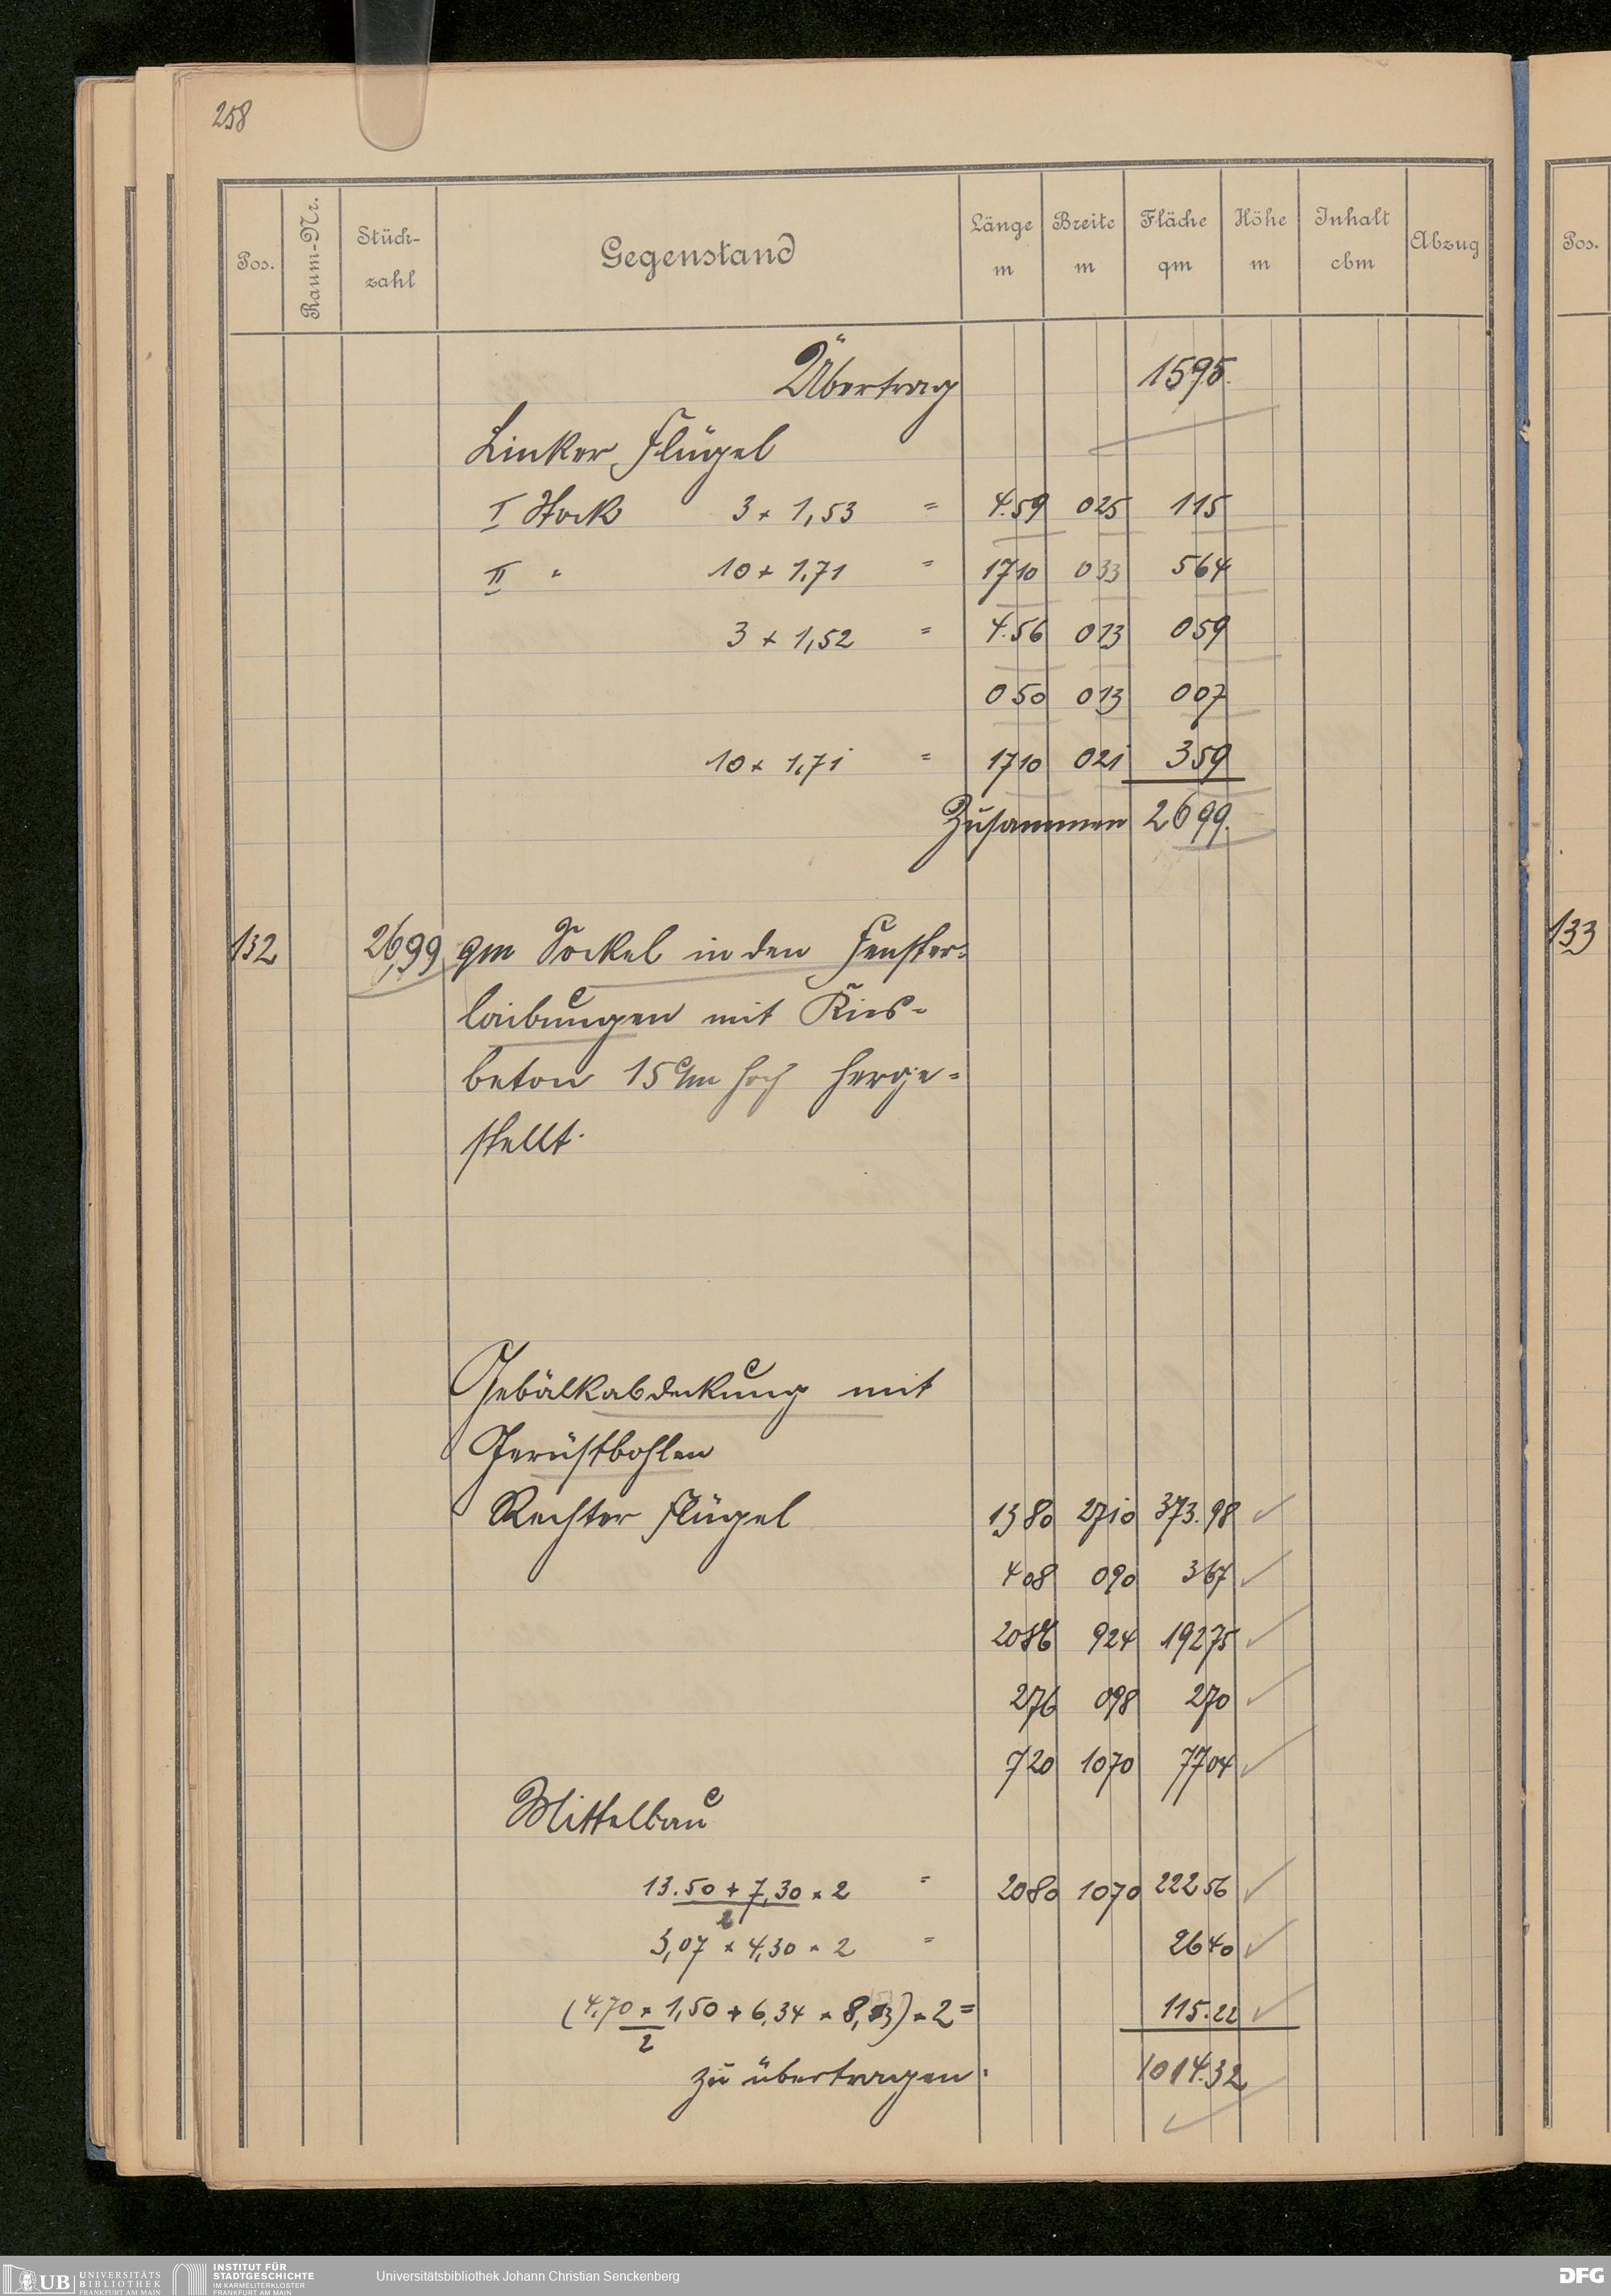 258
Pos. Raum-Nr. Stück-zahl Gegenstand Länge m Breite m Fläche qm Höhe m Inhalt cbm Abzug Pos.
Übertrag 1595.
Linker Flügel
I Stock 3 × 1,53 = 4.59 025 115
II " 10 × 1,71 = 1710 033 564
3 × 1,52 = 4.56 013 059
050 013 007
10 × 1,71 = 1710 021 359
Zusammen 2699.
132 26,99 qm Sockel in den Fenster= 133
laibungen mit Kies=
beton 15 c/m hoch herge=
stellt.
Gebälkabdeckung mit
Gerüstbohlen
Rechter Flügel 1380 2710 373.98
408 090 367
2086 924 19275
276 098 270
720 1070 7704
Mittelbau
13.50 + 7,30 × 2 = 2080 1070 22256
2
3,07 × 4,30 × 2 = 2640
(4,70 × 1,50 + 6,34 × 8, ) × 2 = 115.22
2
zu übertragen. 1014.32
UB UNIVERSITÄTS BIBLIOTHEK FRANKFURT AM MAIN
INSTITUT FÜR STADTGESCHICHTE IM KARMELITERKLOSTER FRANKFURT AM MAIN
Universitätsbibliothek Johann Christian Senckenberg
DFG